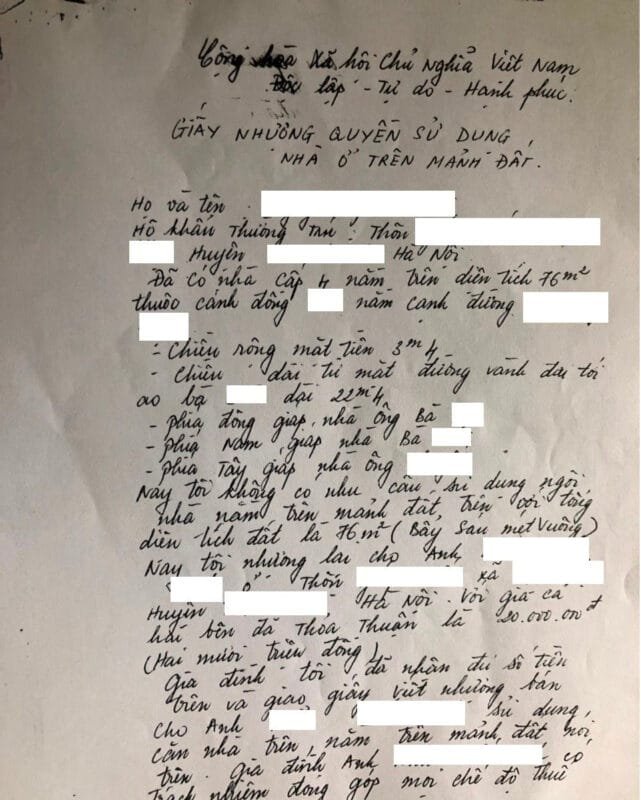 Cộng hòa Xã hội Chủ Nghĩa Việt Nam
Độc lập - Tự do - Hạnh phúc.
GIẤY NHƯỢNG QUYỀN SỬ DỤNG
NHÀ Ở TRÊN MẢNH ĐẤT.
Họ và tên
Hộ khẩu Thường Trú: Thôn
Huyện Hà Nội
Đã có nhà cấp 4 nằm trên diện tích 76m²
thuộc cánh đồng nằm cạnh đường
- Chiều rộng mặt tiền 3m4
- Chiều dài từ mặt đường vành đai tới
ao bà dài 22m4
- phía đông giáp nhà ông Bà
- phía Nam giáp nhà Bà
- phía Tây giáp nhà ông
Nay tôi không có nhu cầu sử dụng ngôi
nhà nằm trên mảnh đất trên với tổng
diện tích đất là 76m² (Bảy Sáu mét vuông)
Nay tôi nhượng lại cho Anh
ở Thôn xã
Huyện Hà Nội. Với giá cả
hai bên đã Thỏa Thuận là 20.000.000đ
(Hai mươi triệu đồng)
Gia đình tôi đã nhận đủ số tiền
trên và giao giấy viết nhượng bán
cho Anh sử dụng
căn nhà trên, nằm trên mảnh đất nói
trên. Gia đình Anh có
trách nhiệm đóng góp mọi chế độ thuế